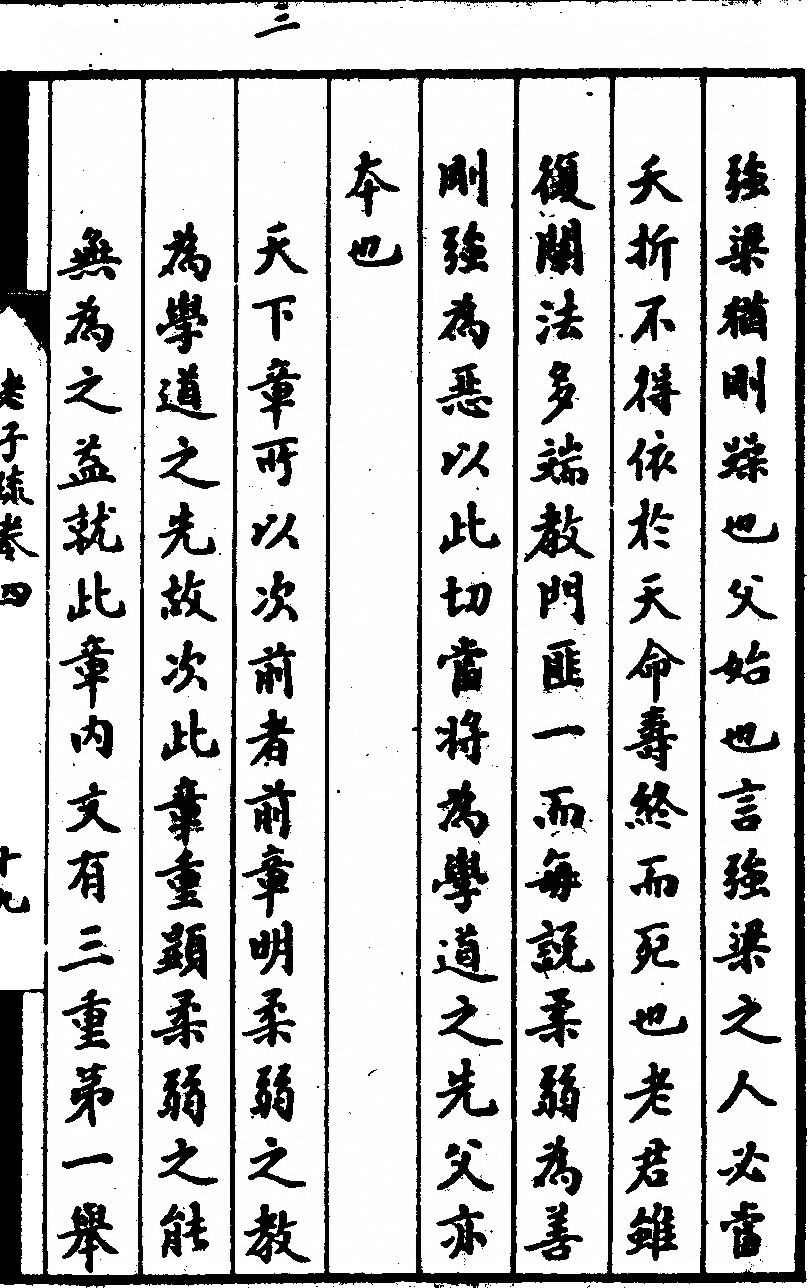 三
強梁猶剛躁也父始也言強梁之人必當
夭折不得依於天命壽終而死也老君雖
復開法多端教門匪一而每說柔弱為善
剛強為惡以此切當將為學道之先父亦
本也
天下章所以次前者前章明柔弱之教
為學道之先故次此章重顯柔弱之能
無為之益就此章內文有三重第一舉
老子疏卷四
十九